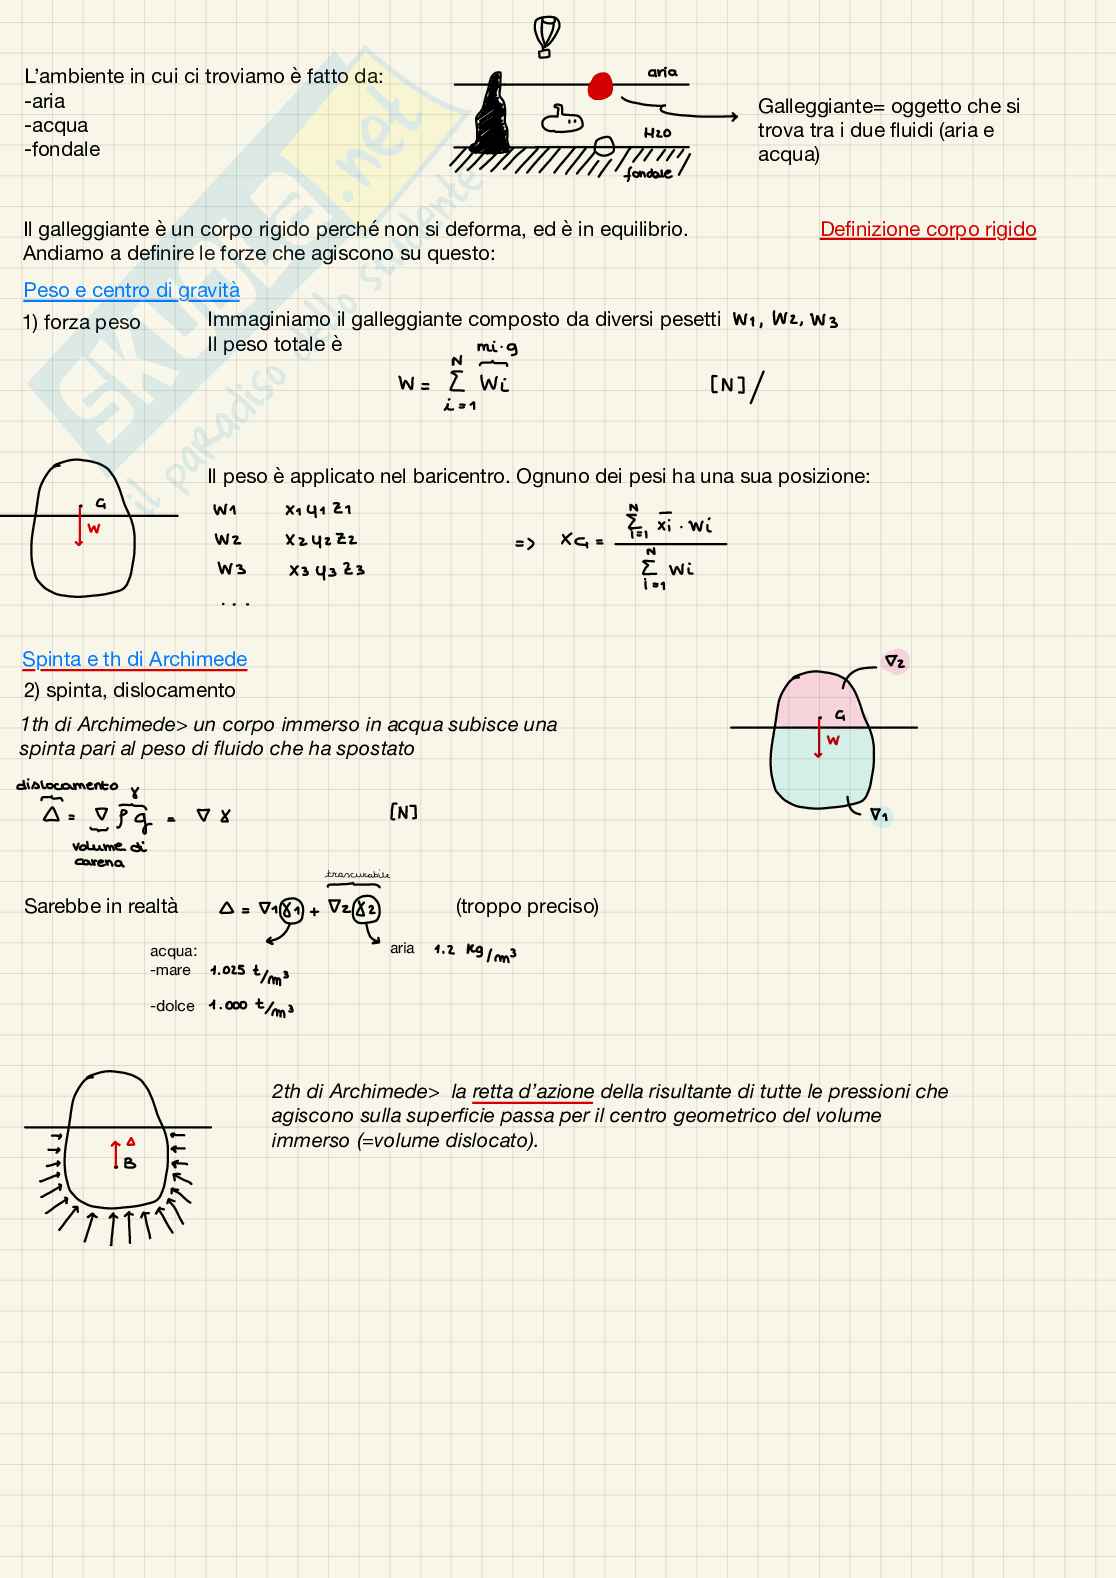 L'ambiente in cui ci troviamo è fatto da:
-aria
-acqua
-fondale
aria
H2O
fondale
Galleggiante= oggetto che si
trova tra i due fluidi (aria e
acqua)
Il galleggiante è un corpo rigido perché non si deforma, ed è in equilibrio.
Definizione corpo rigido
Andiamo a definire le forze che agiscono su questo:
Peso e centro di gravità
1) forza peso
Immaginiamo il galleggiante composto da diversi pesetti W1, W2, W3
Il peso totale è
mi·g
W = N Σ i=1 Wi [N]/
Il peso è applicato nel baricentro. Ognuno dei pesi ha una sua posizione:
G
W
W1 x1 y1 z1
W2 x2 y2 z2
W3 x3 y3 z3
...
=> xG = N Σ i=1 x̄i · Wi / N Σ i=1 Wi
Spinta e th di Archimede
2) spinta, dislocamento
1th di Archimede> un corpo immerso in acqua subisce una
spinta pari al peso di fluido che ha spostato
∇2
G
W
∇1
dislocamento γ
Δ = ∇ ρ g = ∇ γ [N]
volume di
carena
trascurabile
Sarebbe in realtà Δ = ∇1 γ1 + ∇2 γ2 (troppo preciso)
acqua:
-mare 1.025 t/m³
-dolce 1.000 t/m³
aria 1.2 Kg/m³
2th di Archimede> la retta d'azione della risultante di tutte le pressioni che
agiscono sulla superficie passa per il centro geometrico del volume
immerso (=volume dislocato).
Δ
B
SKUOLA.net
il paradiso dello studente